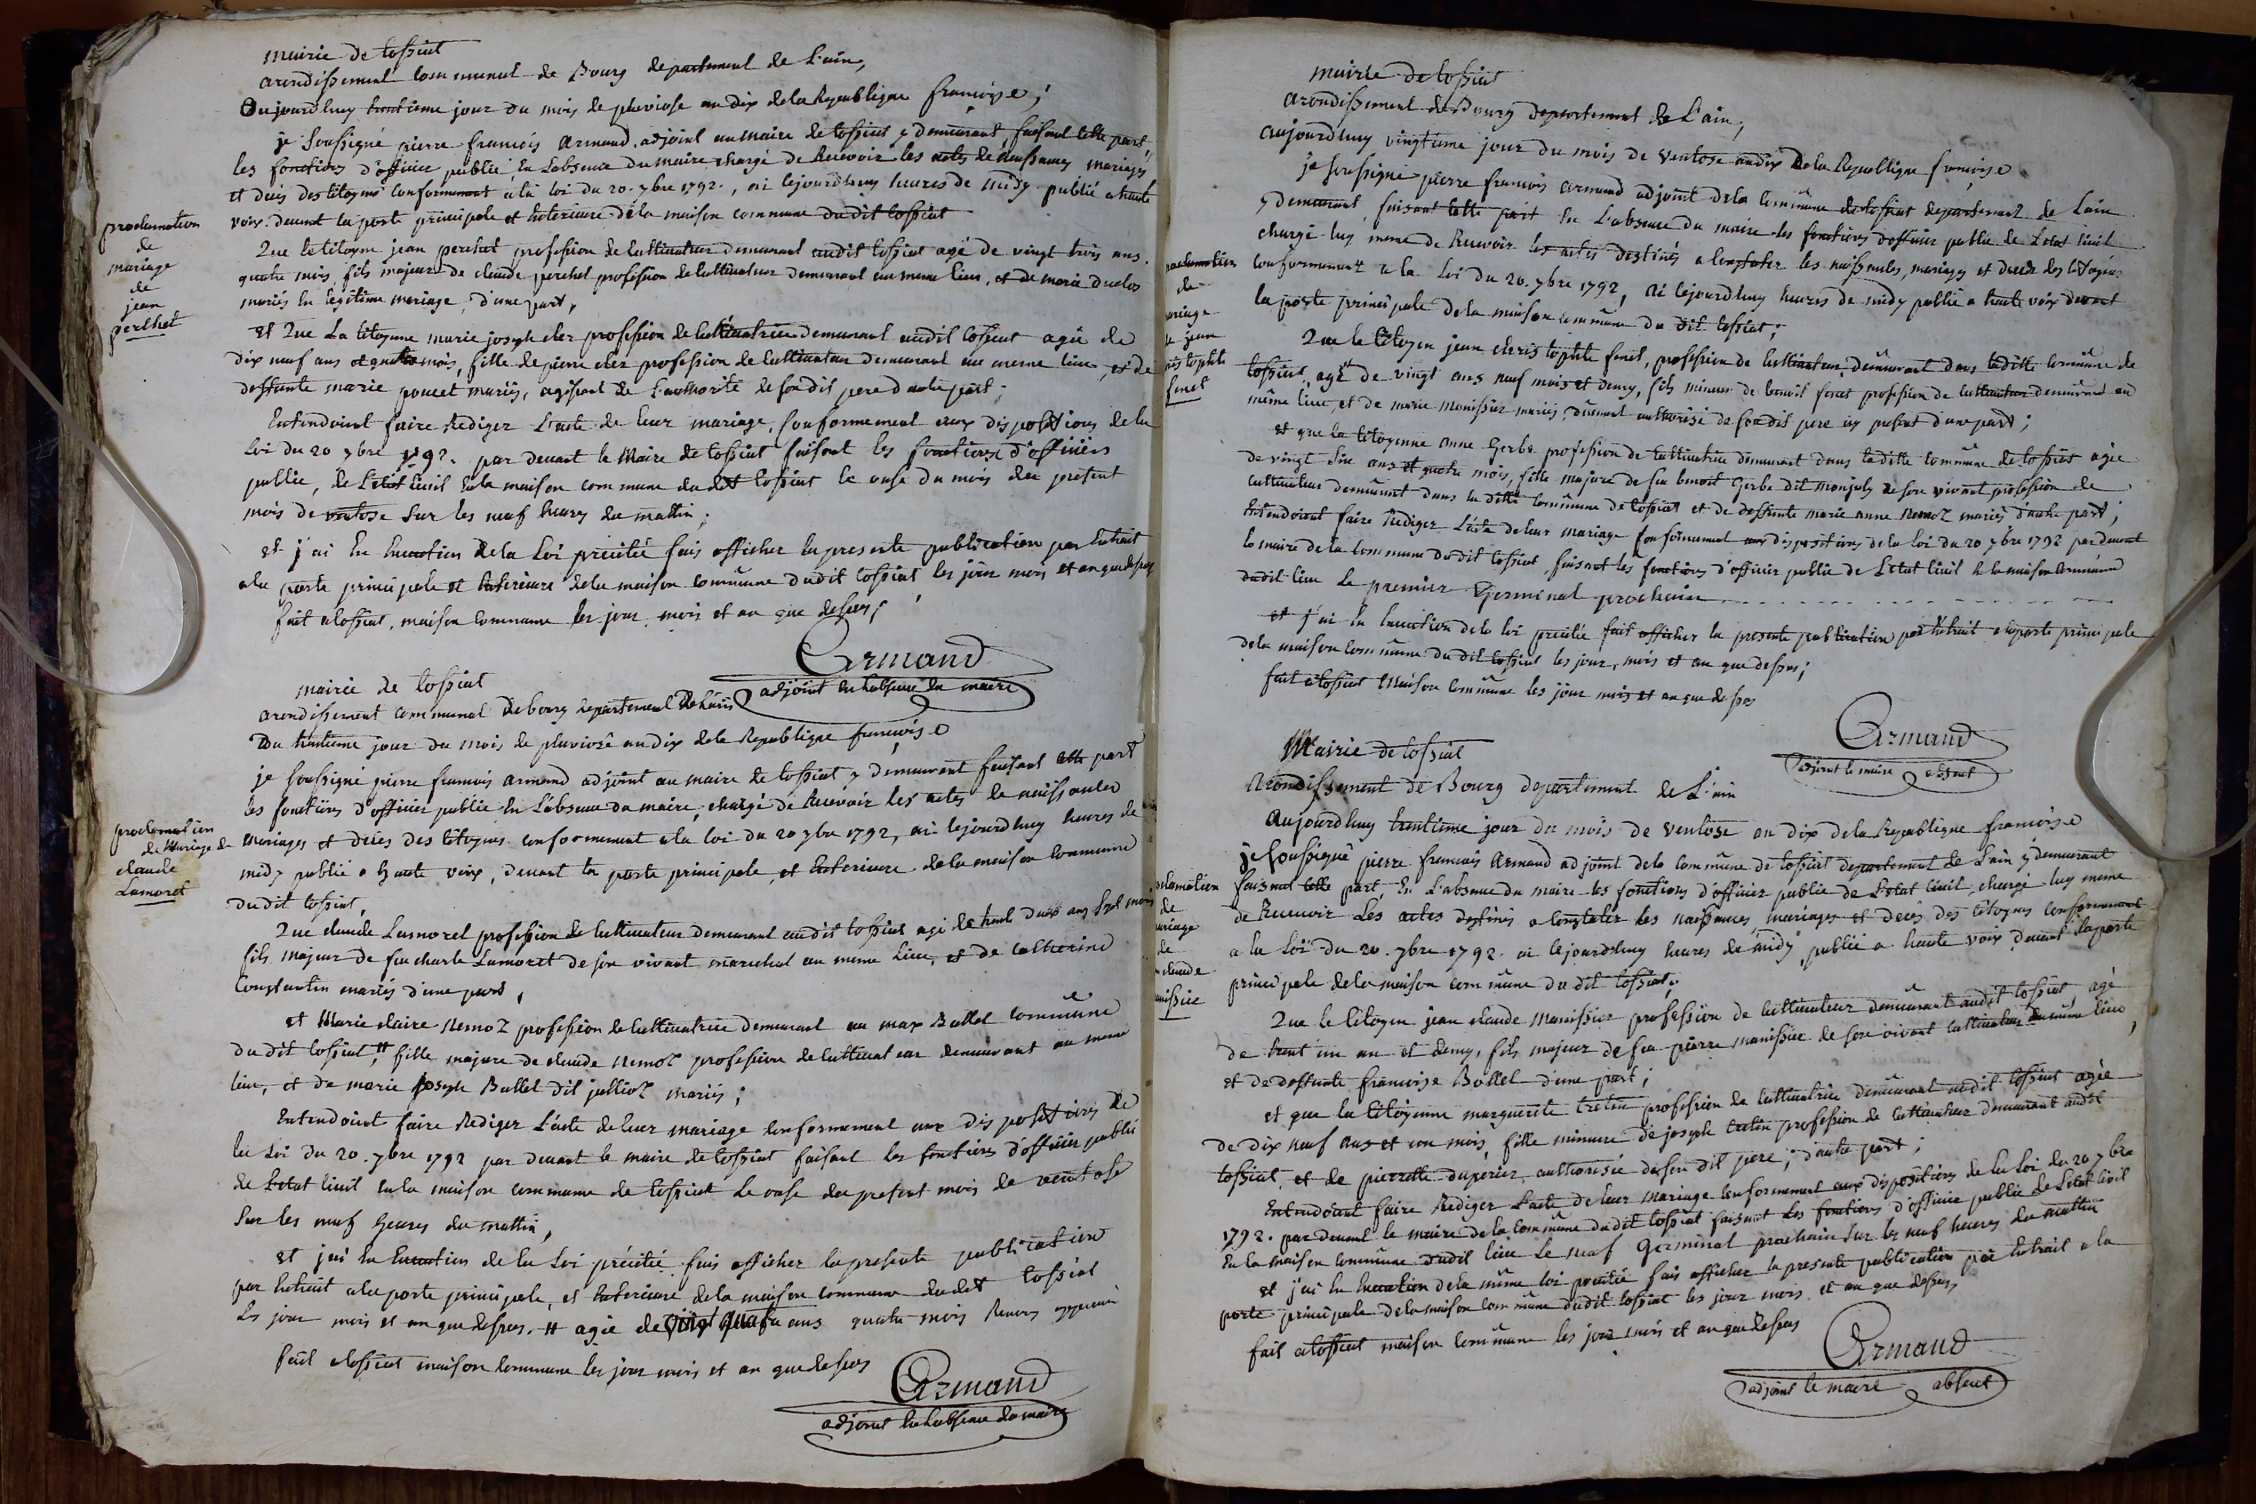 mairie de tossiat
arondissement communal de Bourg departement de L'ain,
Oujourdhuy trentieme jour du mois de pluviose an dix de la Republique francoise;
je soussigné pierre francois armand adjoint au maire de tossiat y demeurant faisant cette part,
les fonctions d'officier publie en L'absence du maire chargé de Recevoir les actes de naissances mariages
et decés des citoyens conformement a la loi du 20. 7bre 1792., ai cejourdhuy heures de midy publié a haute
voix devant la porte principale et exterieure de la maison commune du dit tossiat
proclamation
de
mariage
de
jean
perchet
Que le citoyen jean perchet profession de cultivateur demeurant audit tossiat agé de vingt trois ans
quatre mois, fils majeur de claude perchet profession de cultivateur demeurant au meme lieu, et de marie duclos
mariés en legitime mariage, d'une part,
et Que La citoyenne marie joseph cler profession de cultivatrice demeurant audit tossiat agée de
dix neuf ans et quatre mois, fille de pierre cler profession de cultivateur demeurant au meme lieu, et de
deffunte marie poncet mariés, agissant de L'authorité de son dit pere d'autre part;
Entendoint faire Rediger L'acte de leur mariage, conformement aux dispositions de la
Loi du 20 7bre 1792. par devant le Maire de tossiat faisant les fonctions d'officiers
public, de L'etat civil en la maison commune du dit tossiat le onse du mois du present
mois de ventose sur les neuf heures du mattin;
et j'ai en execution de la Loi precitée fais afficher la presente publication par Extrait
a la porte principale et exterieure de la maison commune dudit tossiat les jour mois et an que dessus
fait a tossiat, maison commune les jour, mois et an que dessus;
Armand
adjoint en L'absence du maire
mairie de tossiat
arondissement communal de bourg departement de L'ain
Du trentieme jour du mois de pluviose an dix de la Republique françoise
je soussigné pierre francois armand adjoint au maire de tossiat y demeurant faisant cette part
les fonctions d'officier public en L'absence du maire, chargé de Recevoir les actes de naissances
proclamation
de Mariage de
claude
Lamoret
mariages et decés des citoyens conformement a la loi du 20 7bre 1792, ai cejourdhuy heures de
midy publié a haute voix, devant la porte principale, et Exterieure de la maison commune
dudit tossiat,
Que claude Lamoret profession de cultivateur demeurant audit tossiat agé de trent deux ans sept mois
fils majeur de feu charle Lamoret de son vivant marechal au meme lieu, et de catherine
Constantin mariés d'une part,
et Marie claire Nemoz profession de cultivatrice demeurant au max Ballet commune
du dit tossiat, # fille majeure de claude Nemoz profession de cultivateur demeurant au meme
lieu, et de marie joseph Ballet dit julliot mariés;
Entendoint faire Rediger L'acte de leur mariage conformement aux dispositions de
la Loi du 20. 7bre 1792 par devant le maire de tossiat faisant les fonctions d'officier public
de L'etat civil en la maison commune de tossiat le onse du present mois de ventose
sur les neuf heures du mattin,
et j'ai en execution de la Loi précitée fais afficher la presente publication
par Extrait a la porte principale, et Exterieure de la maison commune dudit tossiat
Les jour mois et an que dessus. # agée de vingt quatre ans quatre mois
fait a tossiat maison commune les jour mois et an que dessus
Armand
adjoint en L'absence du maire
mairie de tossiat
arondissement de Bourg departement de L'ain;
aujourdhuy vingtieme jour du mois de ventose an dix de la Republique françoise
je soussigné pierre françois armand adjoint de la commune de tossiat departement de Lain
y demeurant, faisant cette part en L'absence du maire les fonctions d'officier public de Letat civil
chargé luy meme de Recevoir les actes destinés a constater les naissances, mariages et decés des citoyens
conformement a la Loi du 20. 7bre 1792, ai cejourdhuy heures de midy publié a haute voix devant
la porte principale de la maison commune du dit tossiat;
Que le citoyen jean christophle feret, profession de cultivateur, demeurant dans la ditte commune de
tossiat, agé de vingt ans neuf mois et demy, fils mineur de benoit feret profession de cultivateur demeurant au
meme lieu et de marie Monissier mariés, dument authorisé de son dit pere icy present d'une part;
et que la citoyenne anne Gerbe profession de cultivatrice demeurant dans la ditte commune de tossiat agée
de vingt six ans et quatre mois, fille majeure de feu benoit Gerbe dit monjoly de son vivant profession de
cultivateur demeurant dans la ditte commune de tossiat et de deffunte marie anne Nemoz mariés d'autre part;
Entendoint faire Rediger L'acte de leur mariage conformement aux dispositions de la loi du 20 7bre 1792 par devant
le maire de la commune du dit tossiat, faisant les fonctions d'officier public de L'etat civil en la maison commune
dudit lieu Le premier Germinal prochain
et j'ai en execution de la loi precitée fait afficher la presente publication par Extrait a la porte principale
de la maison commune du dit tossiat les jour, mois et an que dessus;
fait a tossiat Maison commune les jour mois et an que dessus
Armand
adjoint le maire absent
Mairie de tossiat
Arondissement de Bourg departement de L'ain
Aujourdhuy trentieme jour du mois de ventose an dix de la Republique francoise
je soussigné pierre francois Armand adjoint de la commune de tossiat departement de L'ain y demeurant
faisant cette part en L'absence du maire les fonctions d'officier public de L'etat civil, chargé luy meme
de Recevoir Les actes destinés a constater les naissances, mariages et decés des citoyens conformement
a la Loi du 20. 7bre 1792. ai cejourdhuy heures de midy, publié a haute voix devant la porte
principale de la maison commune du dit tossiat;
Que le citoyen jean claude Monissier profession de cultivateur demeurant audit tossiat agé
de trent un an et demy, fils majeur de feu pierre monissier de son vivant cultivateur du même lieu,
et de deffunte françoise Ballet d'une part;
et que la citoyenne marguerite tretin profession de cultivatrice demeurant audit tossiat agée
de dix neuf ans et un mois, fille mineure de joseph tretin profession de cultivateur demeurant audit
tossiat, et de pierrette duperier, authorisée de son dit pere; d'autre part;
Entendoint faire Rediger L'acte de leur mariage conformement aux dispositions de la Loi du 20 7bre
1792. par devant le maire de la commune du dit tossiat faisant les fonctions d'officier public de Letat civil
En la maison commune dudit lieu Le neuf Germinal prochain sur les neuf heures du mattin
et j'ai en execution de la même loi precitée fais afficher la presente publication par Extrait a la
porte principale de la maison commune dudit tossiat les jour mois et an que dessus,
fait a tossiat maison commune les jour mois et an que dessus
Armand
adjoint le maire absent